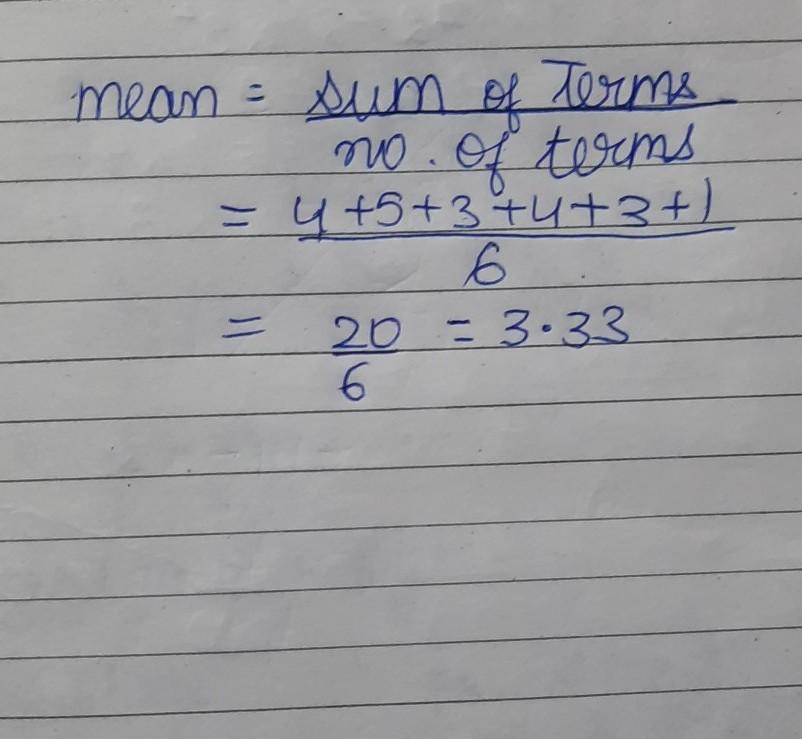 mean = sum of Terms
no. of terms
= 4+5+3+4+3+1
6
= 20 = 3.33
6